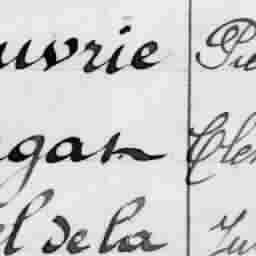 uvrie Pie
gan Cle
el de la Ju